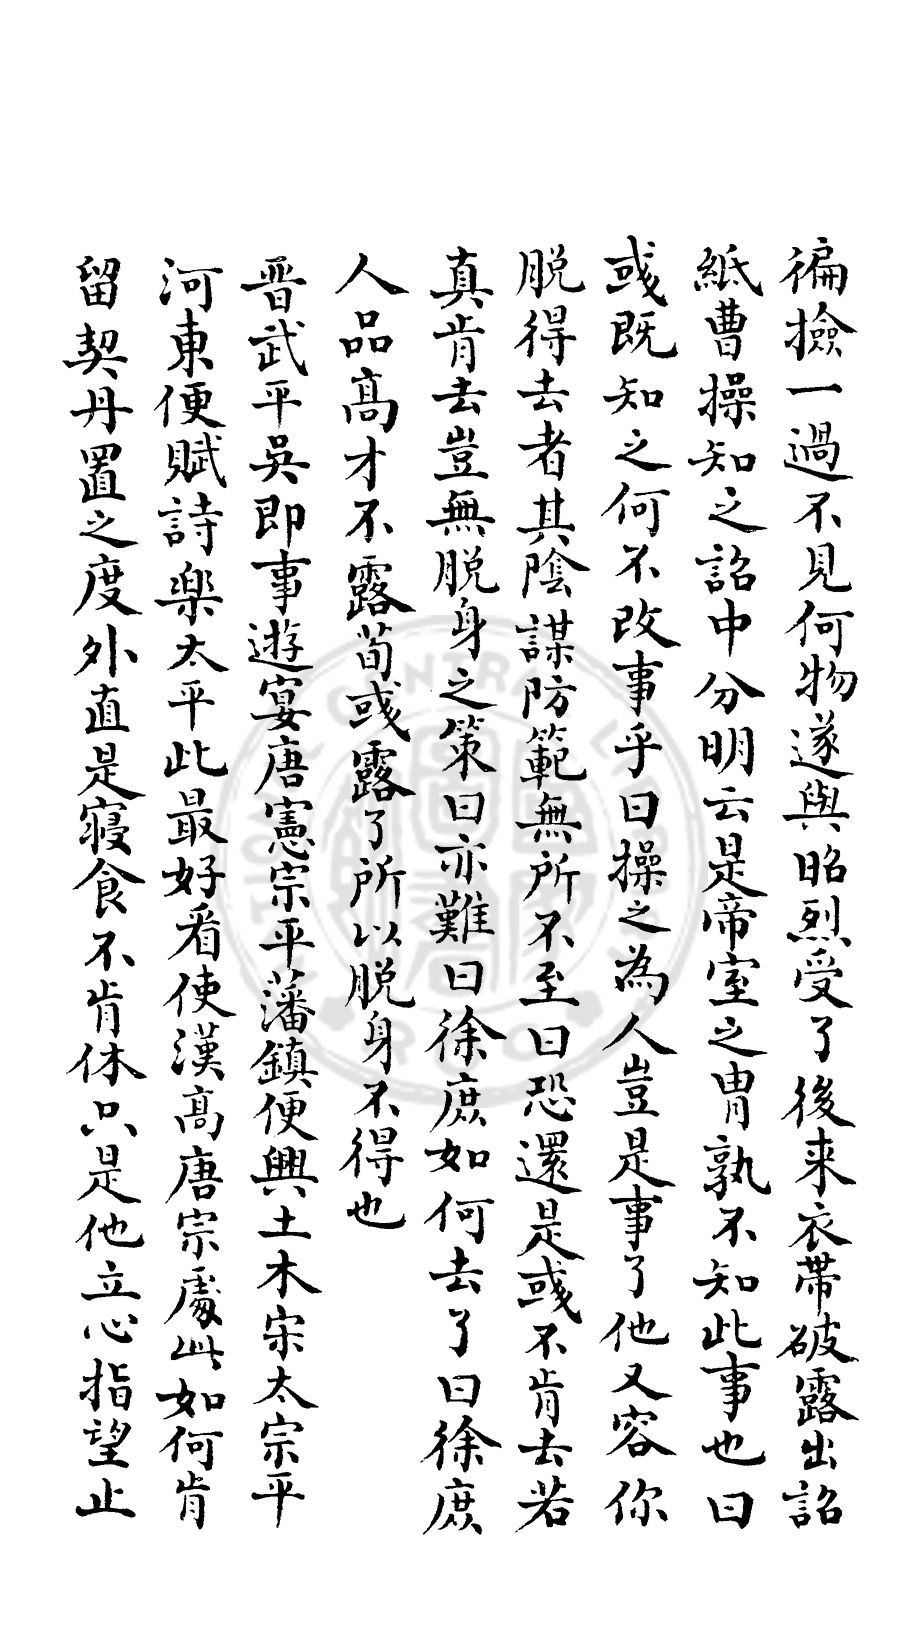 徧撿一過不見何物遂與昭烈受了後来衣帶破露出詔
紙曹操知之詔中分明云是帝室之冑孰不知此事也曰
彧既知之何不改事乎曰操之為人豈是事了他又容你
脱得去者其陰謀防範無所不至曰恐還是彧不肯去若
真肯去豈無脱身之策曰亦難曰徐庶如何去了曰徐庶
人品髙才不露荀彧露了所以脱身不得也
晋武平吳即事遊宴唐憲宗平藩鎮便興土木宋太宗平
河東便賦詩樂太平此最好看使漢髙唐宗處此如何肯
留契丹置之度外直是寢食不肯休只是他立心指望止